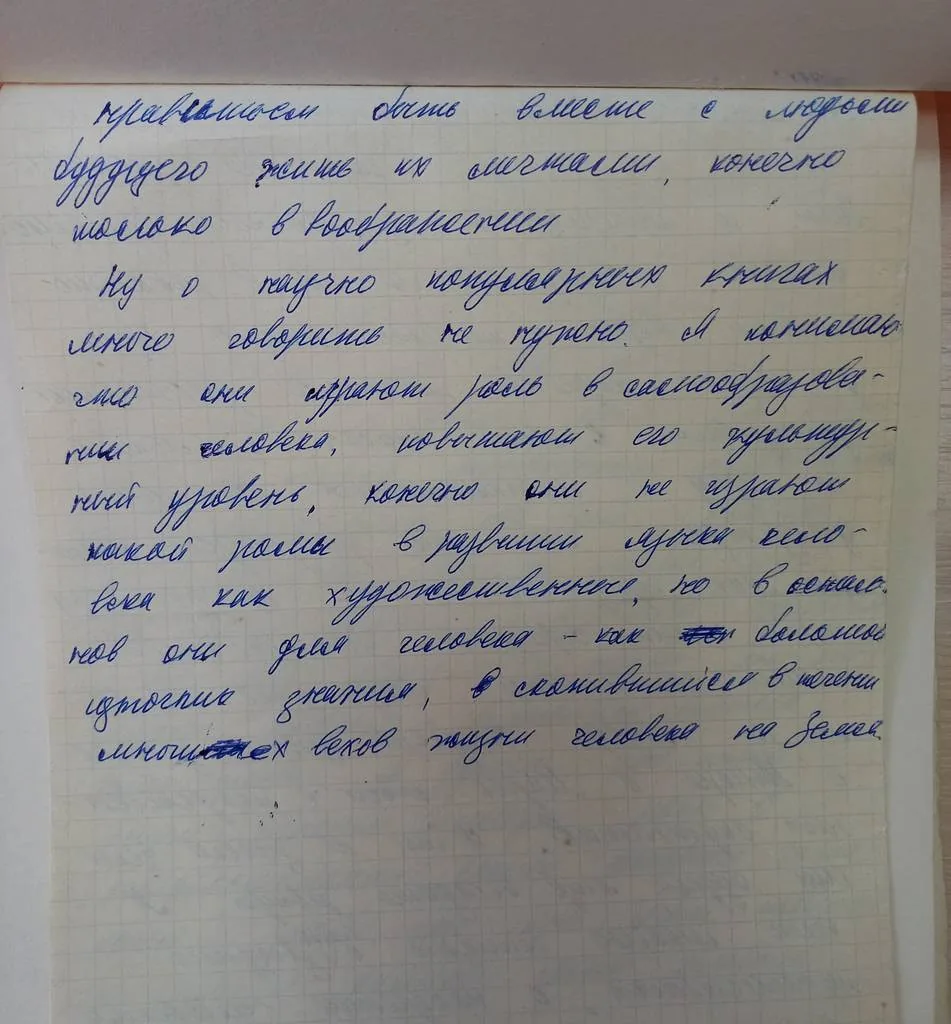 нравиться быть вместе с людьми
будущего жить их мечтами, конечно
только в воображении
Ну о научно популярных книгах
много говорить не нужно. Я понимаю
что они играют роль в самообразова-
нии человека, повышают его культур-
ный уровень, конечно они не играют
такой роли в развитии языка чело-
века как художественные, но в осталь
ном они для человека - как большой
источник знания, скопившийся в течении
многих веков жизни человека на Земле.